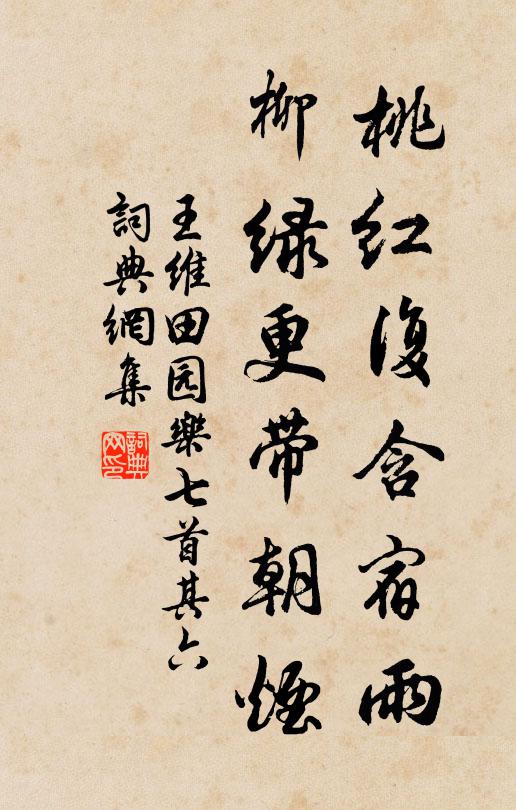 桃红復含宿雨
柳绿更带朝煙
王维田园樂七首其六
詞典網集
詞典网印